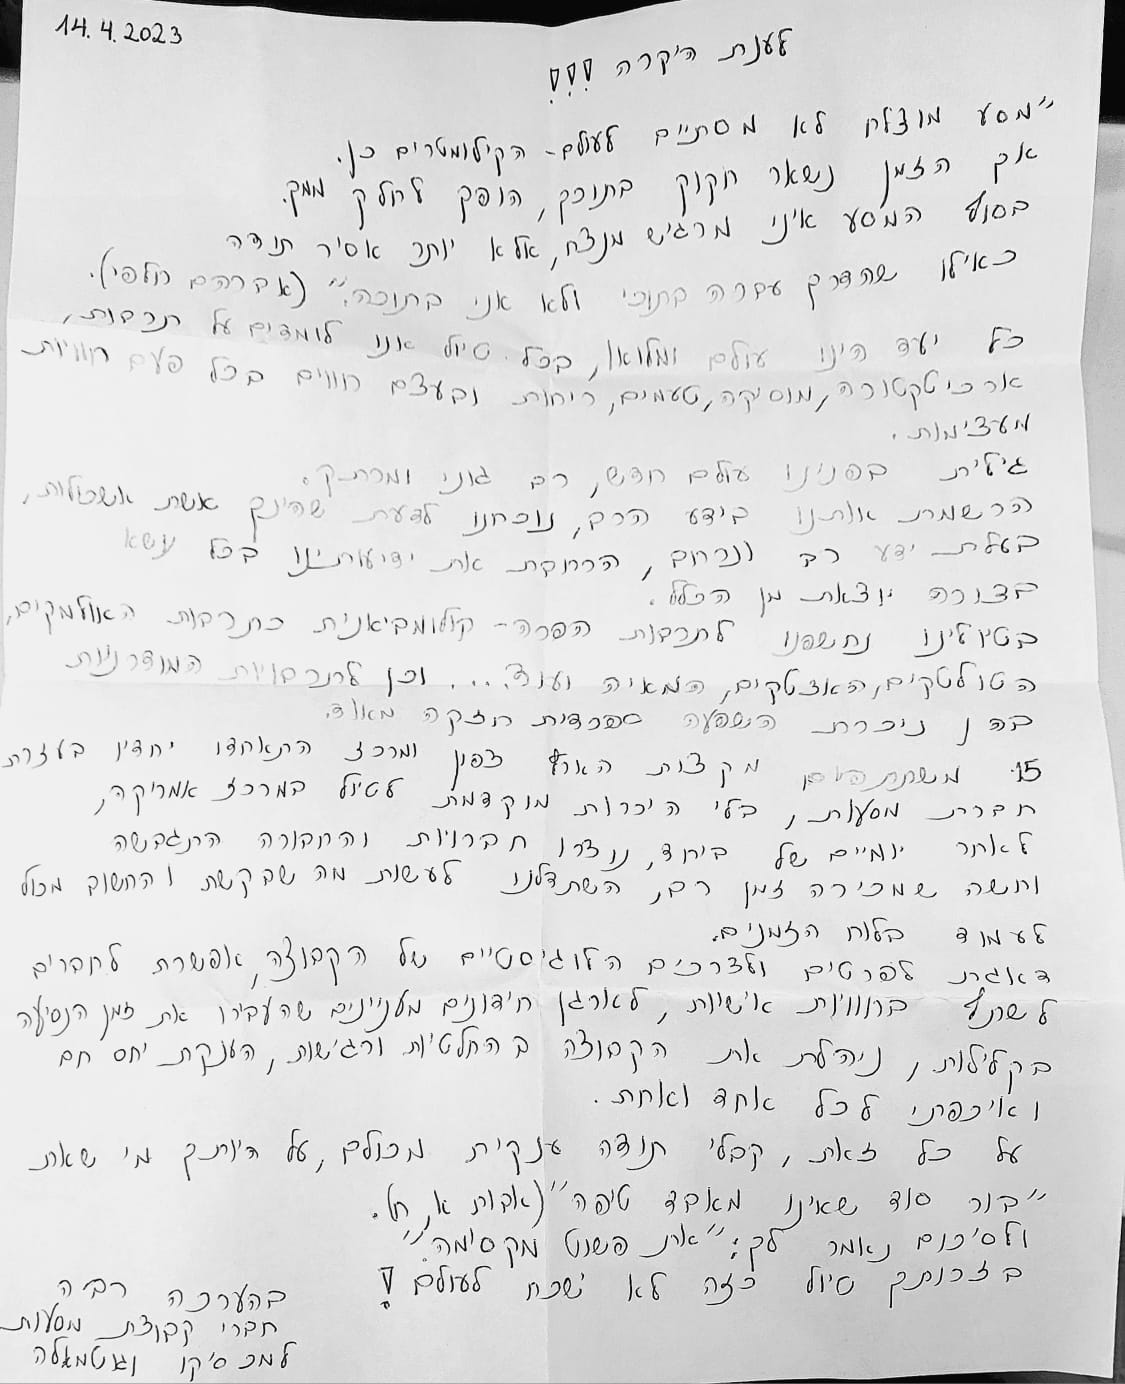 14.4.2023
לענת היקרה !!!
"מסע מוצלח לא מסתיים לעולם - הקילומטרים כן.
אך הזמן נשאר חקוק בתוכך, הופך לחלק ממך.
בסוף המסע איני מרגיש מנצח, אלא יותר אסיר תודה
כאילו שהדרך עברה בתוכי ולא אני בתוכה." (אברהם חלפי).
כל יעד הינו עולם ומלואו, בכל טיול אנו לומדים על תרבות,
ארכיטקטורה, מוסיקה, טעמים, ריחות ובעצם חווים בכל פעם חוויות
מעצימות.
גילית בפנינו עולם חדש, רב גוני ומרתק.
הרשמת אותנו בידע הרב, נוכחנו לדעת שהינך אשת אשכולות,
בעלת ידע רב ונרחב, הרחבת את ידיעותינו בכל נושא
בצורה יוצאת מן הכלל.
בטיולינו נחשפנו לתרבות הפרה - קולומביאנית כתרבות האולמקים,
הטולטקים, האצטקים, המאיה ועוד... וכן לתרבויות המודרניות
בהן ניכרת השפעה ספרדית חזקה מאוד.
15 משתתפים מקצות הארץ צפון ומרכז התאחדו יחדיו בעזרת
חברת מסעות, בלי היכרות מוקדמת לטיול במרכז אמריקה,
לאחר יומיים של ביחד, נוצרו חברויות והחבורה התגבשה
וחשה שמכירה זמן רב, השתדלנו לעשות מה שבקשת והחשוב מכול
לעמוד בלוח הזמנים.
דאגת לפרטים ולצרכים הלוגיסטיים של הקבוצה, אפשרת לחברים
לשתף בחוויות אישיות, לארגן חידונים מעניינים שהעבירו את זמן הנסיעה
בקלילות, ניהלת את הקבוצה בהחלטיות ורגישות, הענקת יחס חם
ואיכפתי לכל אחד ואחת.
על כל זאת, קבלי תודה ענקית מכולם, על היותך מי שאת
"בור סוד שאינו מאבד טיפה" (אבות א, ח).
ולסיכום נאמר לך: "את פשוט מקסימה"
בזכותך טיול כזה לא ישכח לעולם !
בהערכה רבה
חברי קבוצת מסעות
למכסיקו וגוטמאלה